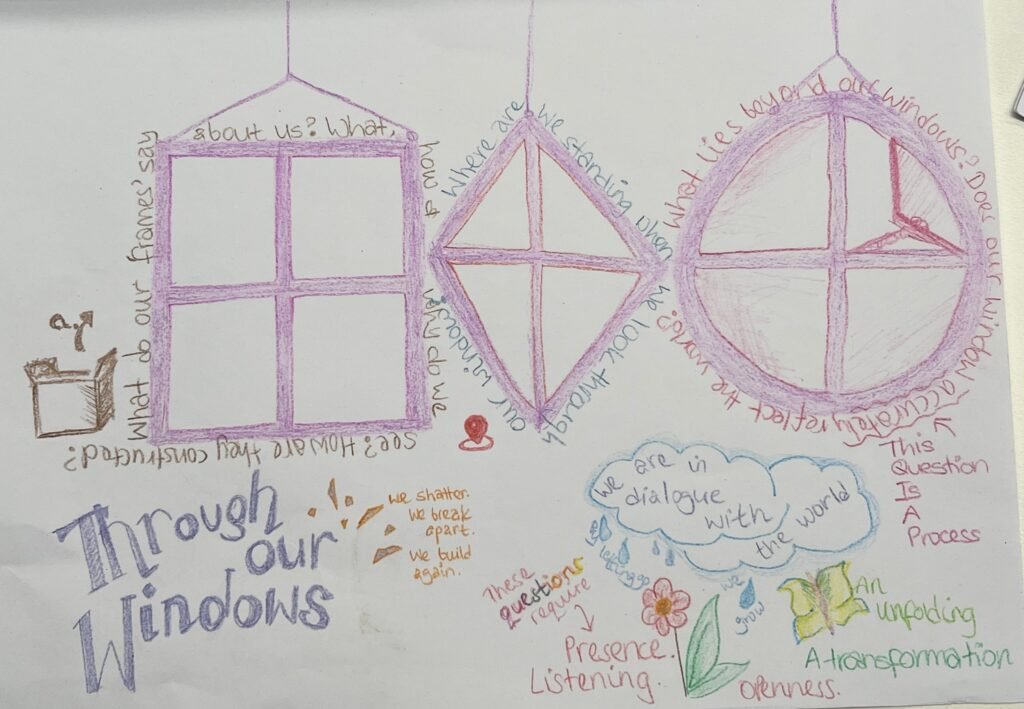 What do our 'frames' say
about us? What,
how &
why do we
see? How are they constructed?
Where are
we standing when
we look through
our window?
What lies beyond our windows? Does our window
accurately reflect the world?
This
Question
Is
A
Process
Through
our
Windows
we shatter.
we break
apart.
we build
again.
We are in
dialogue
with
the world
letting go
we
grow
These
questions
require
Presence.
Listening.
openness.
An
unfolding
A transformation